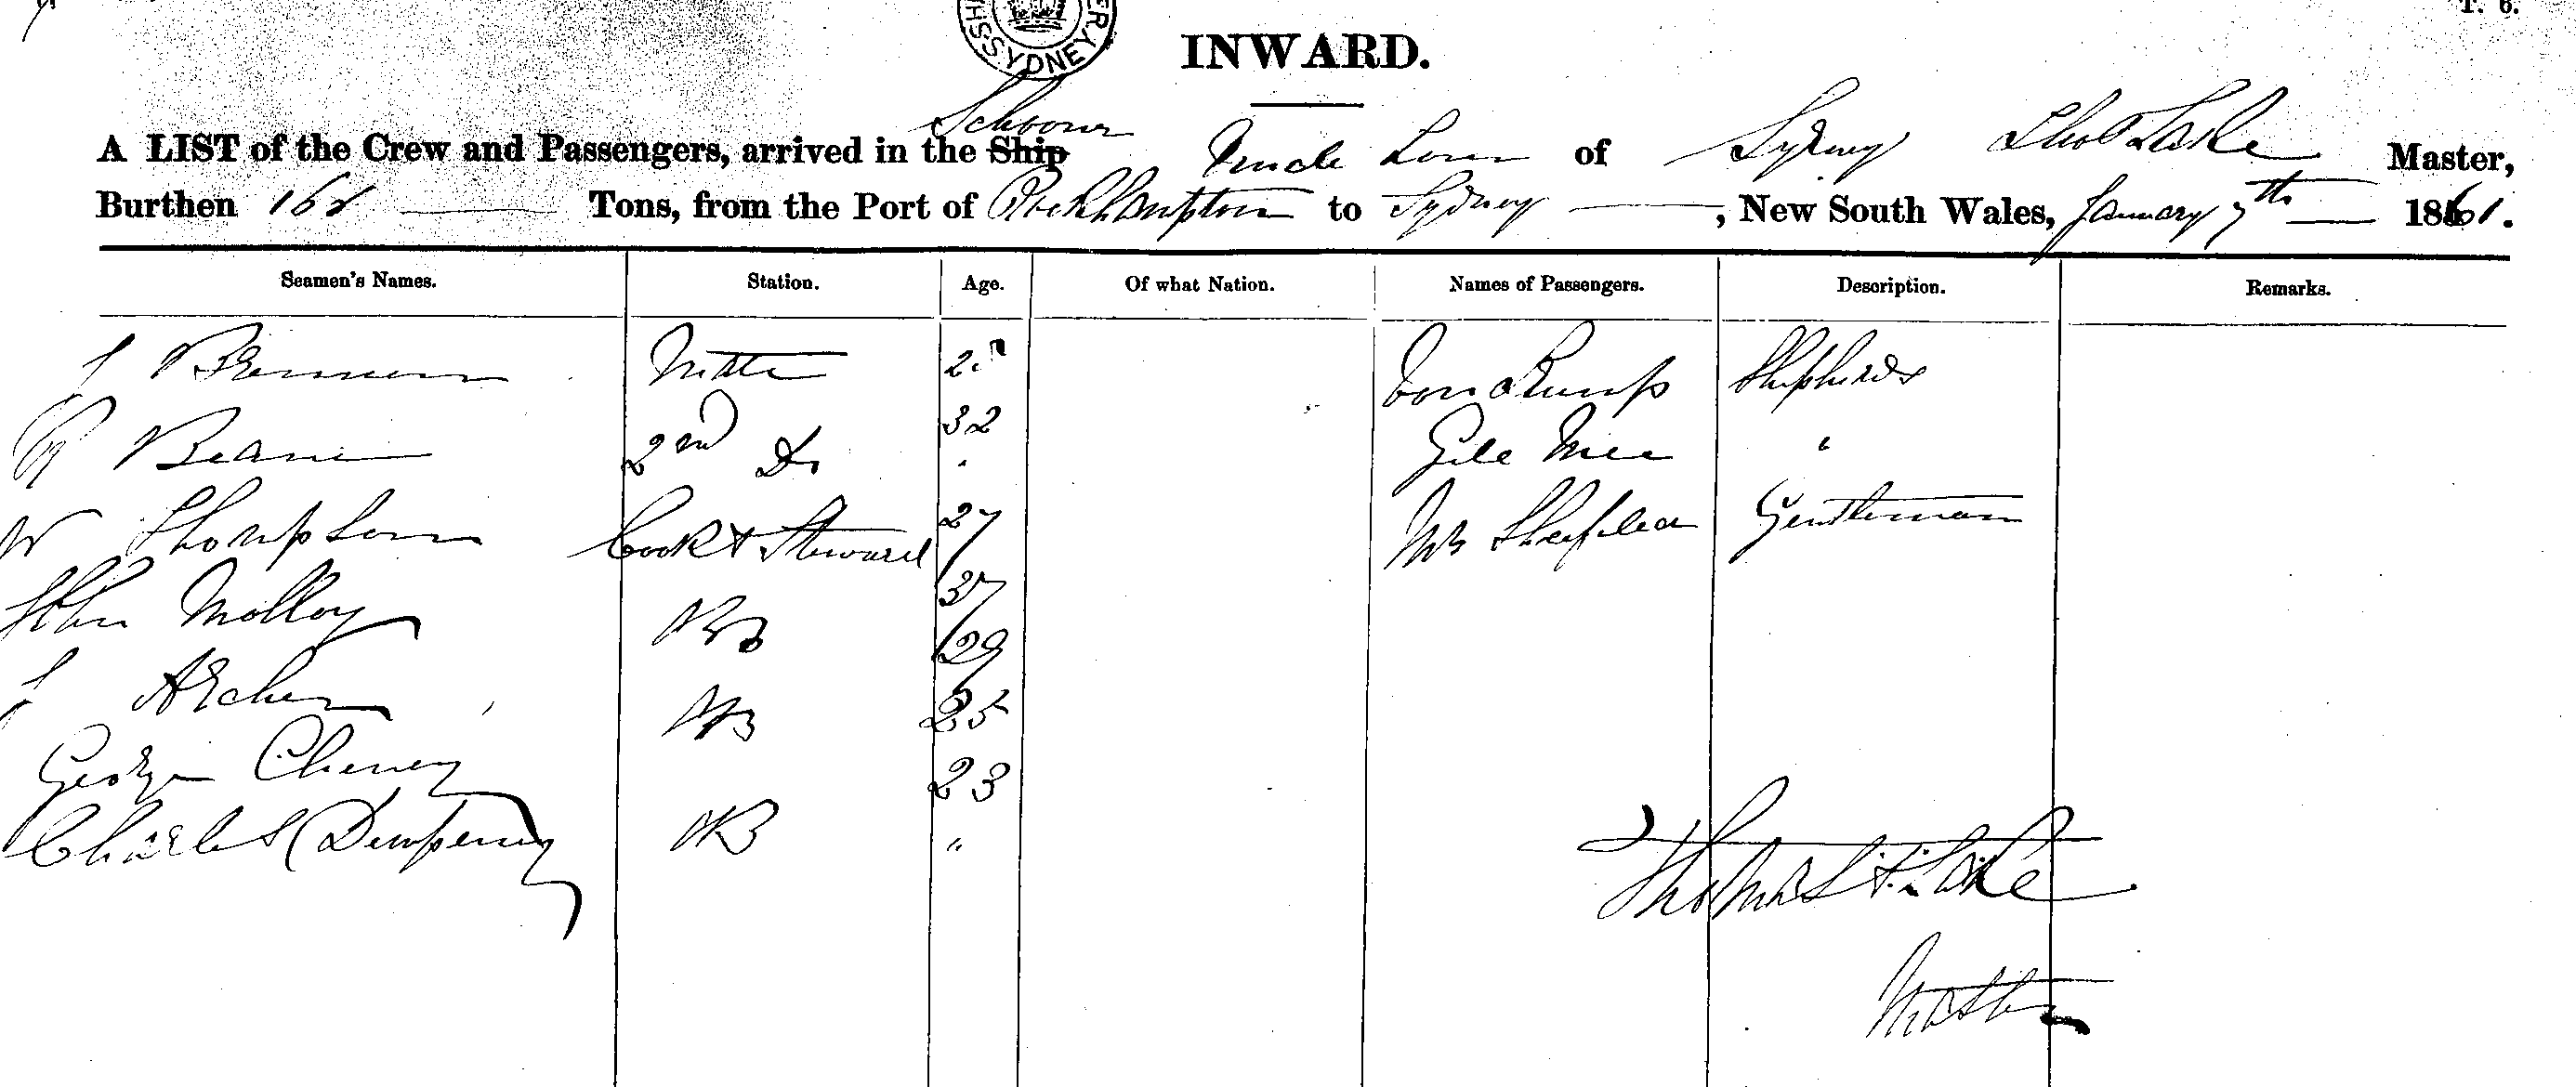 T. 6.
SYDNEY
INWARD.
Schooner
A LIST of the Crew and Passengers, arrived in the Ship Uncle Tom of Sydney Thos Lake Master,
Burthen 168 Tons, from the Port of Rockhampton to Sydney, New South Wales, January 7th 1861.
Seamen's Names. Station. Age. Of what Nation. Names of Passengers. Description. Remarks.
J Brennan Mate 25 Shepherds
R 2nd Do 32 Gee Mee "
W Thompson Cook & Steward 27 Mr Gentleman
John Molloy AB 37
J Archer AB 29
George Cheney 25
Charles Dempsey AB 23
"
Thomas F. Lake
Master